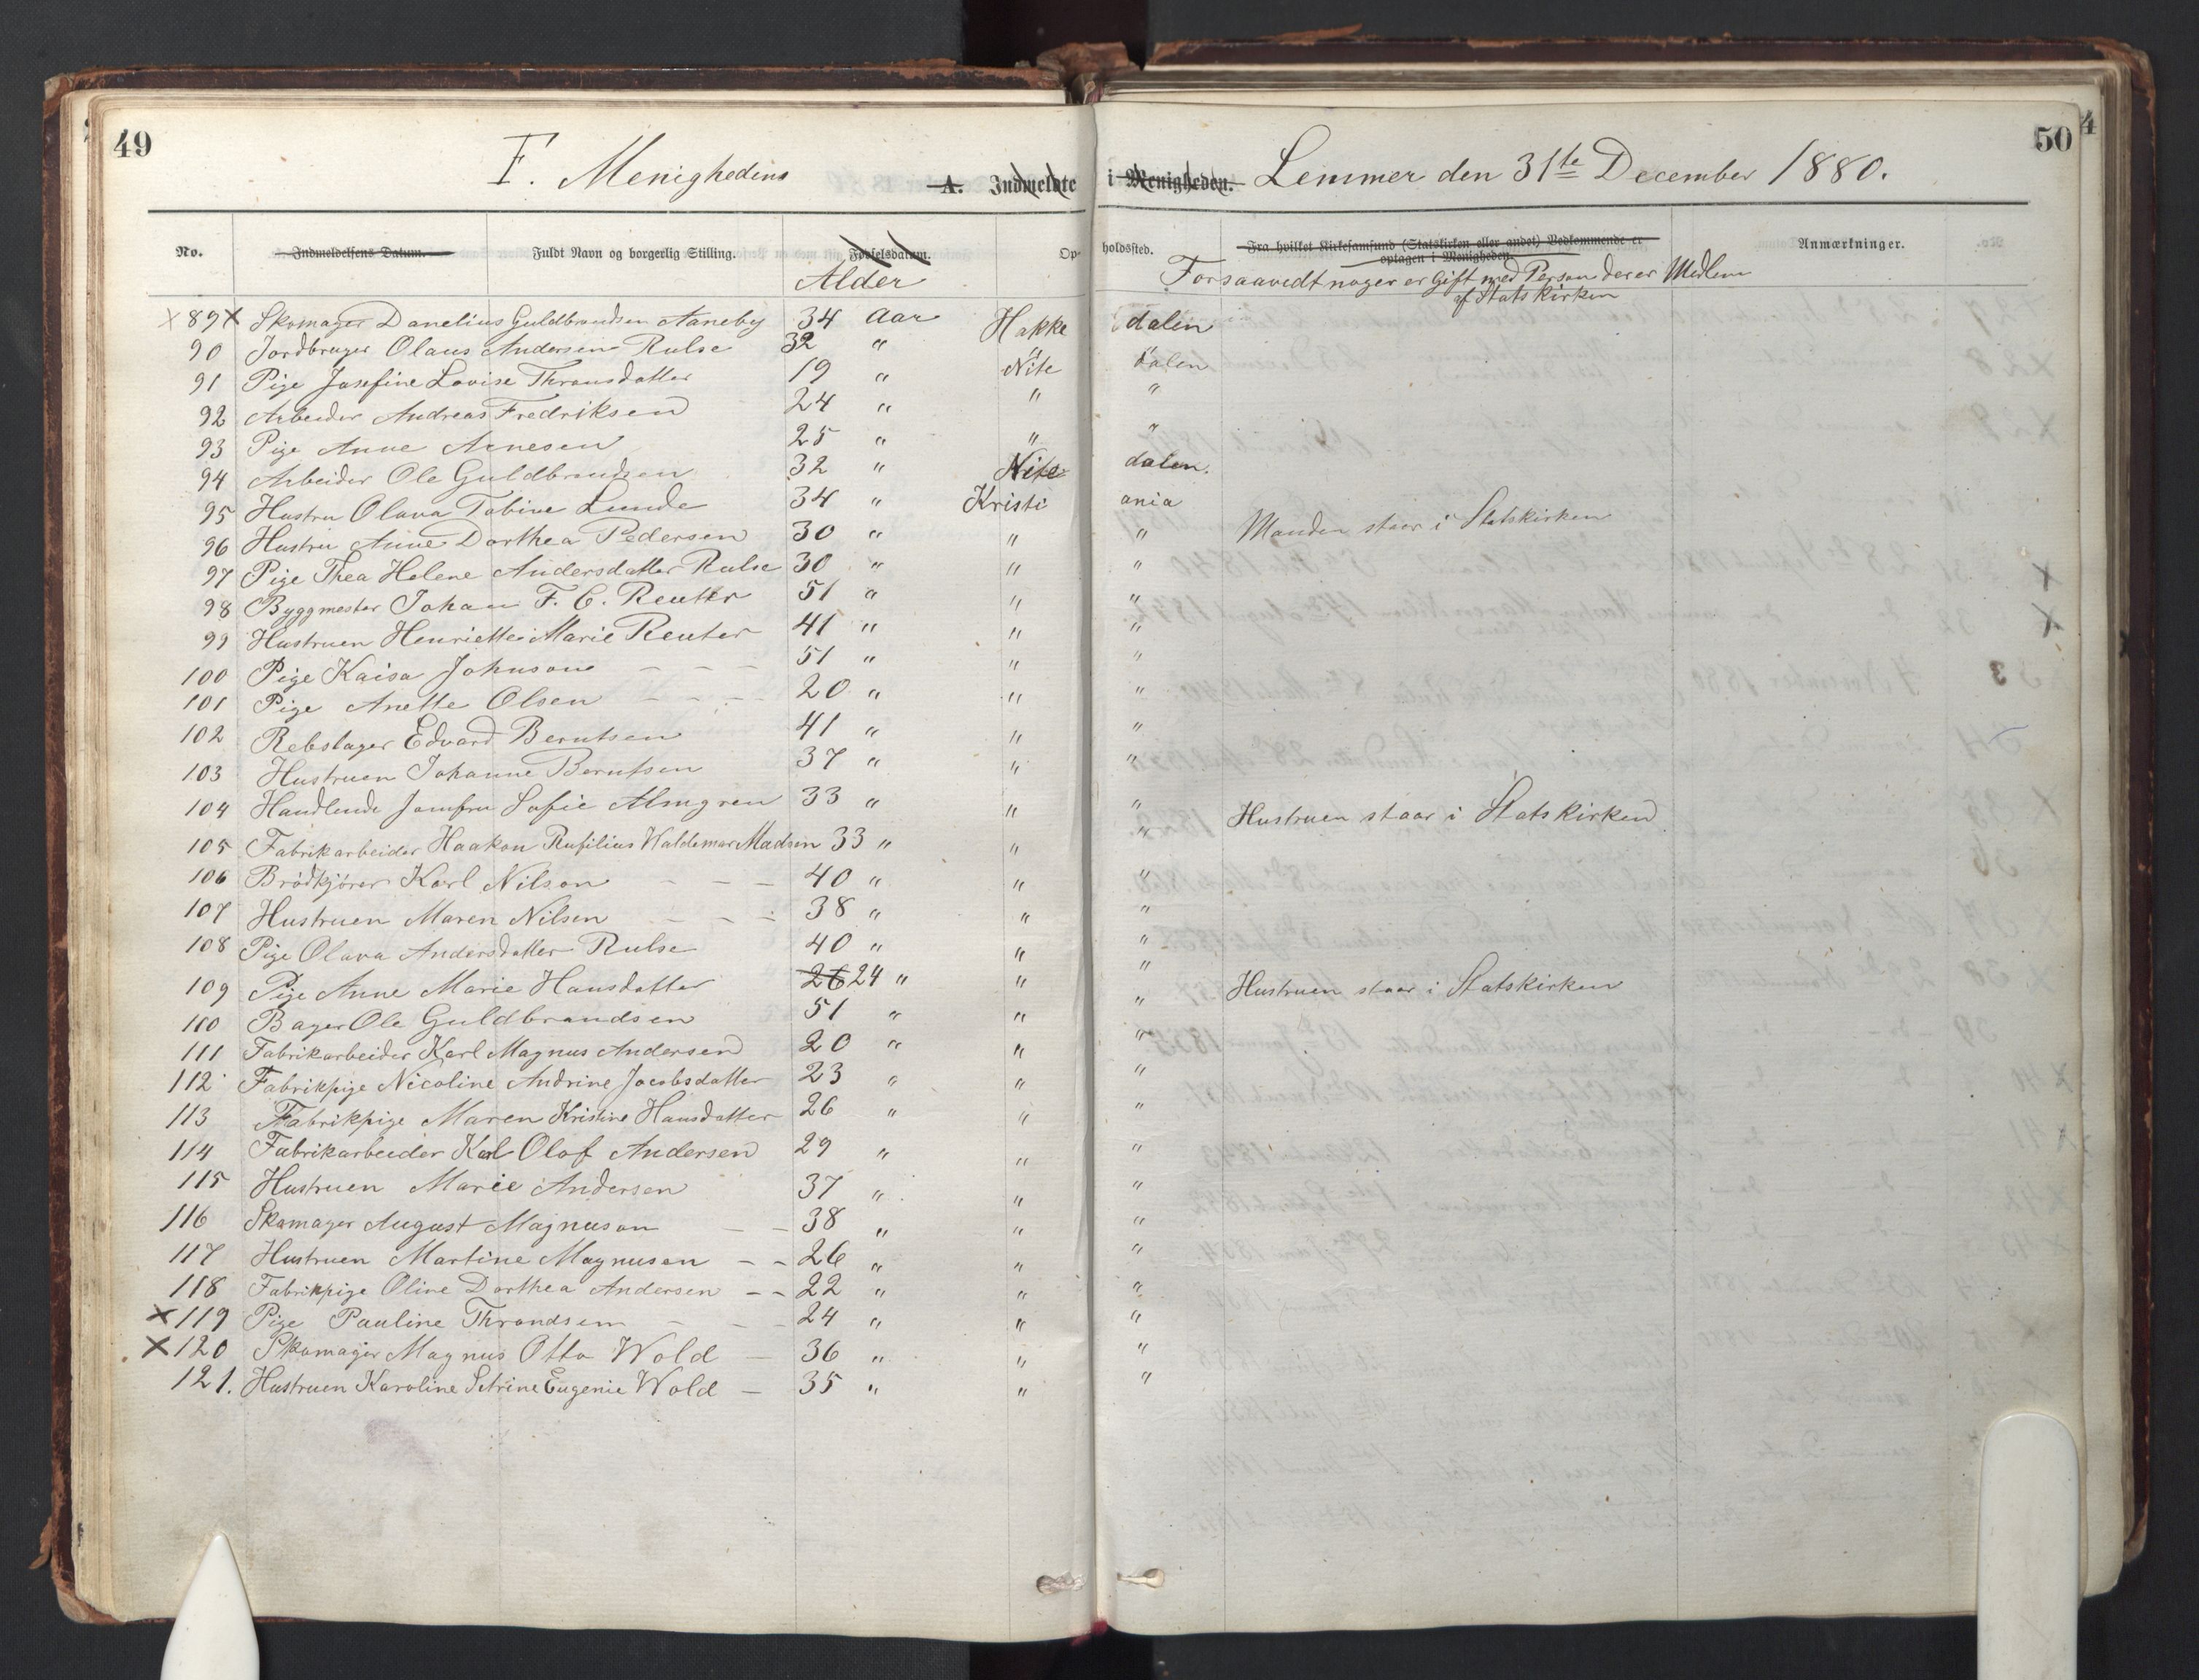 49
50
4
F. Menighedens A. Indmeldte i Menigheden. Lemmer den 31te December 1880.
No. Indmeldelsens Datum. Fuldt Navn og borgerlig Stilling. Fødselsdatum. Opholdssted. Fra hvilket Kirkesamfund (Statskirken eller andet) Vedkommende er optagen i Menigheden. Anmærkninger.
Alder Forsaavedt noger er Gift med Person der er Medlem
af Statskirken
X 89 X Skomager Danelius Guldbrandsen Aaneby 34 Aar Hakkedalen
90 Jordbruger Olaus Andersen Rulse 32 " " "
91 Pige Josefine Lovise Thronsdatter 19 " Nitedalen
92 Arbeider Andreas Fredriksen 24 " " "
93 Pige Anne Arnesen 25 " " "
94 Arbeider Ole Guldbrandsen 32 " Nitedalen.
95 Hustru Olava Tobine Lunde 34 " Kristiania
96 Hustru Anne Dorthea Pedersen 30 " " " Manden staar i Statskirken
97 Pige Thea Helene Andersdatter Rulse 30 " " "
98 Byggmester Johan F. C. Reuter 51 " " "
99 Hustruen Henriette Marie Reuter 41 " " "
100 Pige Kaisa Johnson - - - 51 " " "
101 Pige Anette Olsen - - - - 20 " " "
102 Rebslager Edvard Berntsen 41 " " "
103 Hustruen Johanne Berntsen 37 " " "
104 Handlende Jomfru Sofie Almgren 33 " " "
105 Fabrikarbeider Haakon Rufilius Waldemar Madsen 33 " " " Hustruen staar i Statskirken
106 Brödkjörer Karl Nilson - - - 40 " " "
107 Hustruen Maren Nilsen - - - 38 " " "
108 Pige Olava Andersdatter Rulse 40 " " "
109 Pige Anne Marie Hansdatter 26 24 " " "
110 Bager Ole Guldbrandsen 51 " " " Hustruen staar i Statskirken
111 Fabrikarbeider Karl Magnus Andersen 20 " " "
112 Fabrikpige Nicoline Andrine Jacobsdatter 23 " " "
113 Fabrikpige Maren Kristine Hansdatter 26 " " "
114 Fabrikarbeider Karl Olof Andersen 29 " " "
115 Hustruen Marie Andersen 37 " " "
116 Skomager August Magnuson - - 38 " " "
117 Hustruen Martine Magnusen - - 26 " " "
118 Fabrikpige Oline Dorthea Andersen - - 22 " " "
X 119 Pige Pauline Throndsen - - - 24 " " "
X 120 Skomager Magnus Otto Wold - 36 " " "
121. Hustruen Karoline Petrine Eugenie Wold - 35 " " "